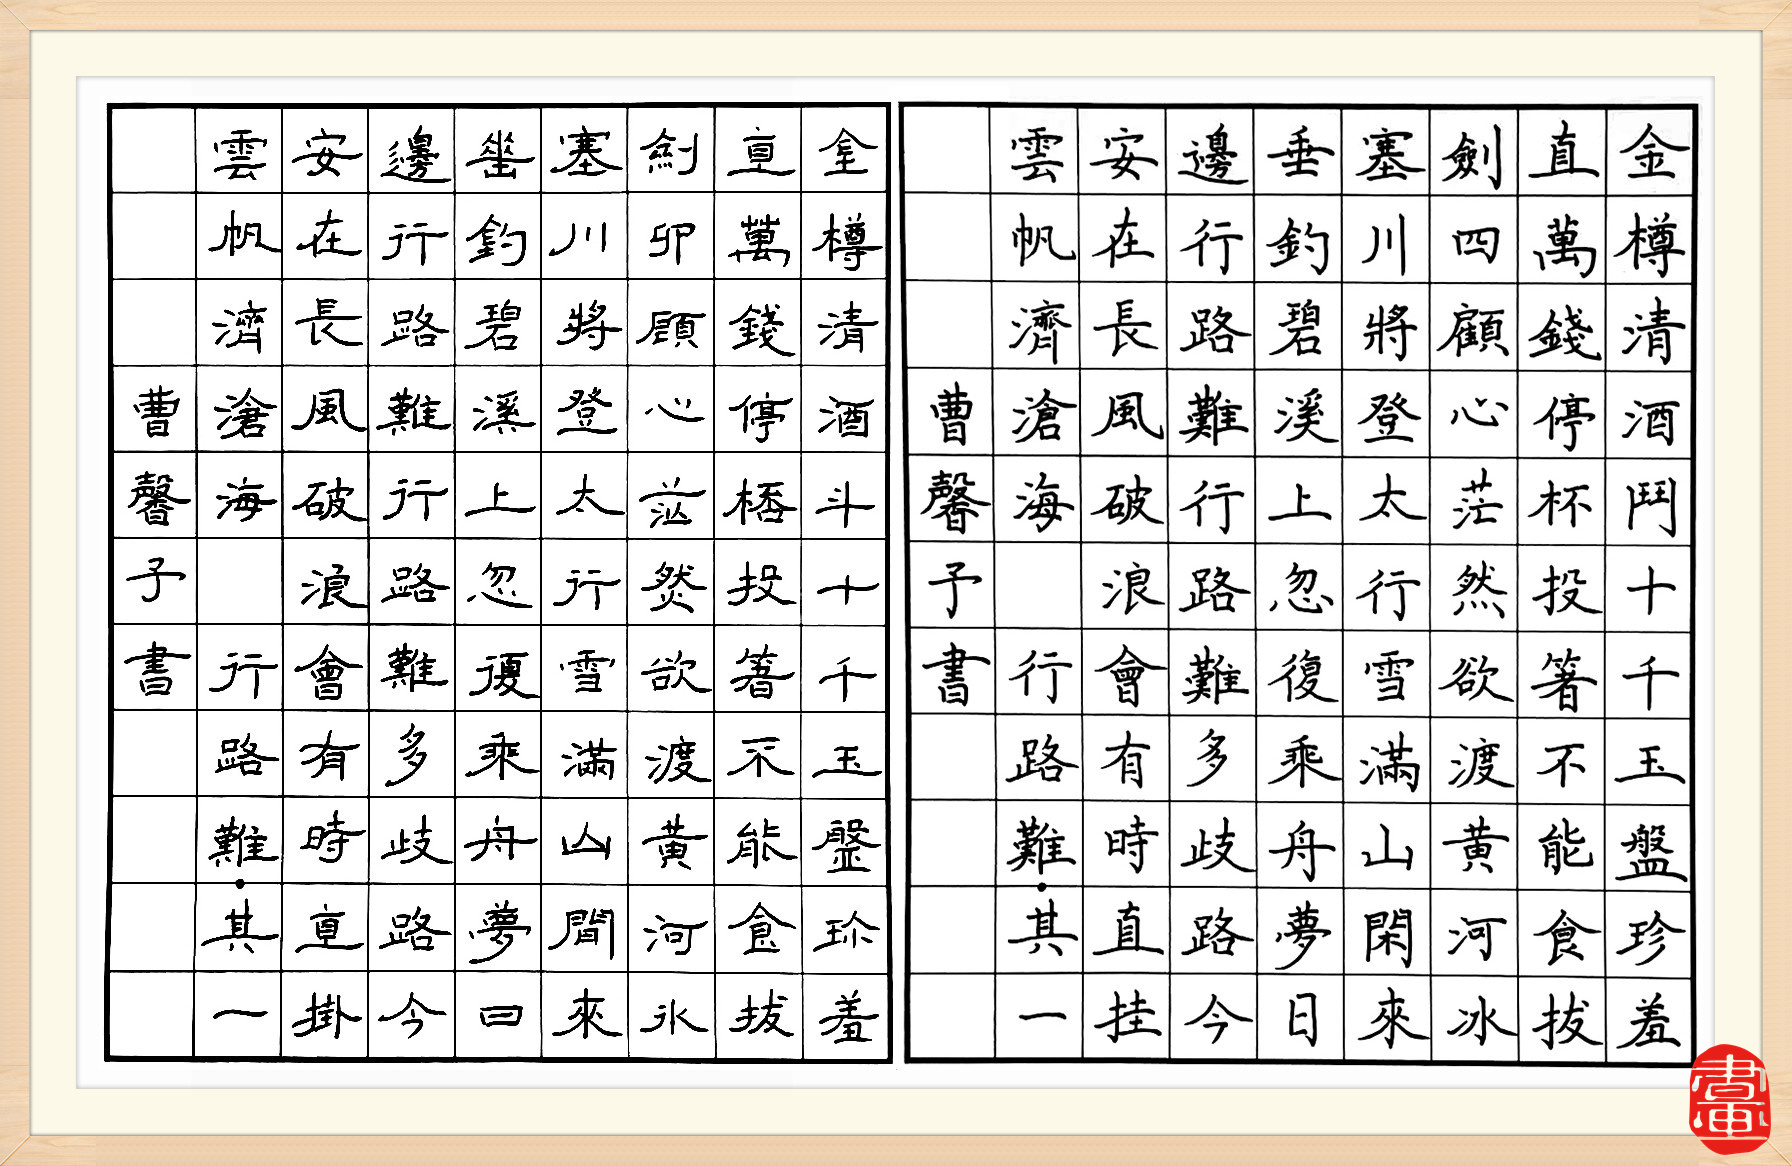 金樽清酒鬥十千玉盤珍羞
直萬錢停杯投箸不能食拔
劍四顧心茫然欲渡黃河冰
塞川將登太行雪滿山閑來
垂釣碧溪上忽復乘舟夢日
邊行路難行路難多歧路今
安在長風破浪會有時直挂
雲帆濟滄海 行路難·其一
曹馨予書
金樽清酒斗十千玉盤珍羞
直萬錢停桮投箸不能食拔
劍卯顧心茫然欲渡黃河冰
塞川將登太行雪滿山間來
垂釣碧溪上忽復乘舟夢日
邊行路難行路難多歧路今
安在長風破浪會有時直掛
雲帆濟滄海 行路難·其一
曹馨予書